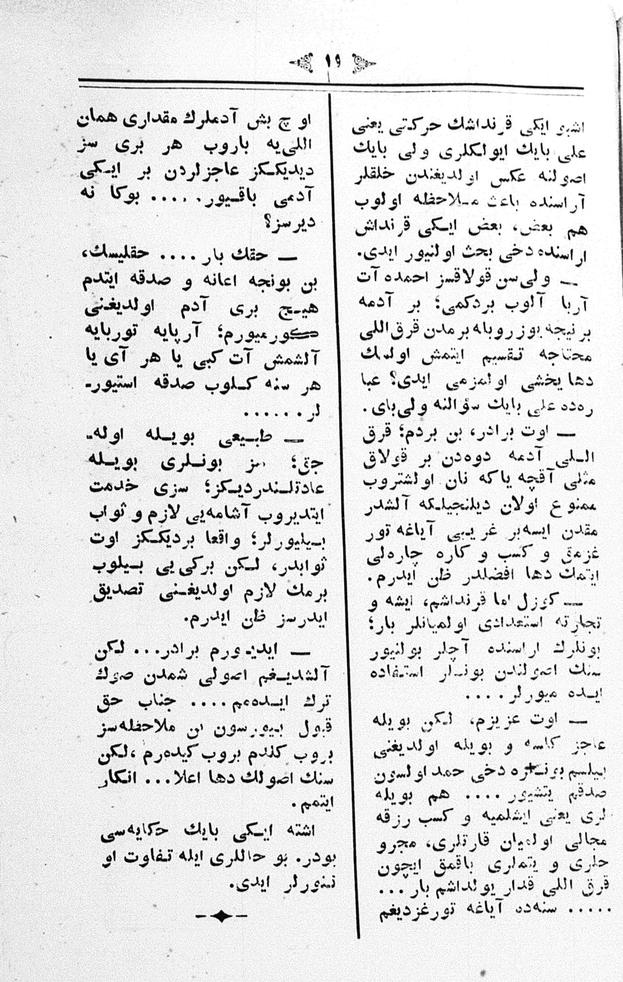 ١٩
اشبو ايكى قرنداشك حركتى يعنى
على بايك ايولكلرى ولى بايك
اصولنه عكس اولديغندن خلقلر
آراسنده باعث ملاحظه اولوب
هم بعض، بعض ايكى قرنداش
اراسنده دخى بحث اولنيور ايدى.
— ولى سن قولاقسز احمده آت
آربا آلوب بردكمى؛ بر آدمه
برنيجه يوز روبله برمدن قرق اللى
محتاجه تقسيم ايتمش اولسك
دها يخشى اولمزمى ايدى؟ عبا
رەده على بايك سؤالنه ولى باى.
— اوت برادر، بن بردم؛ قرق
اللى آدمه دوەدن بر قولاق
مثلى آقچه ياكه نان اولشتروب
ممنوع اولان ديلنجيلكه آلشدر
مقدن ايسه بر غريبى آياغه تور
غزمق و كسب و كاره چارەلى
ايتمك دها افضلدر ظن ايدرم.
— كوزل اما قرنداشم، ايشه و
تجارته استعدادى اولميانلر بار؛
بونلرك اراسنده آچلر بولنيور
سنك اصولندن بونلر استفاده
ايده ميورلر....
— اوت عزيزم، لكن بويله
عاجز كاسه و بويله اولديغنى
بيلسم بونلره دخى حمد اولسون
صدقم يتشيور.... هم بويله
لرى يعنى ايشلميه و كسب رزقه
مجالى اولميان قارتلرى، مجرو
حلرى و يتملرى باقمق ايچون
قرق اللى قدار يولداشم بار...
..... سنەده آياغه تورغزديغم
اوچ بش آدملرك مقدارى همان
اللى يه باروب هر برى سز
ديديككز عاجزلردن بر ايكى
آدمى باقيور..... بوكا نه
ديرسز؟
— حقك بار.... حقليسك،
بن بونجه اعانه و صدقه ايتدم
هيچ برى آدم اولديغنى
كورميورم؛ آرپايه تورپايه
آلشمش آت كبى يا هر آى يا
هر سنه كلوب صدقه استيور-
لر......
— طبيعى بويله اوله-
جق؛ سز بونلرى بويله
عادتلندرديكز؛ سزى خدمت
ايتديروب آشامه يى لازم و ثواب
بيليورلر؛ واقعا برديككز اوت
ثوابدر، لكن بركى يى بيلوب
برمك لازم اولديغنى تصديق
ايدرسز ظن ايدرم.
— ايديورم برادر... لكن
آلشديغم اصولى شمدن صوك
ترك ايدەمم.... جناب حق
قبول بيورسون بن ملاحظه سز
بروب كلدم بروب كيدەرم، لكن
سنك اصولك دها اعلا... انكار
ايتمم.
اشته ايكى بايك حكايه سى
بودر. بو حاللرى ايله تفاوت او
لنورلر ايدى.